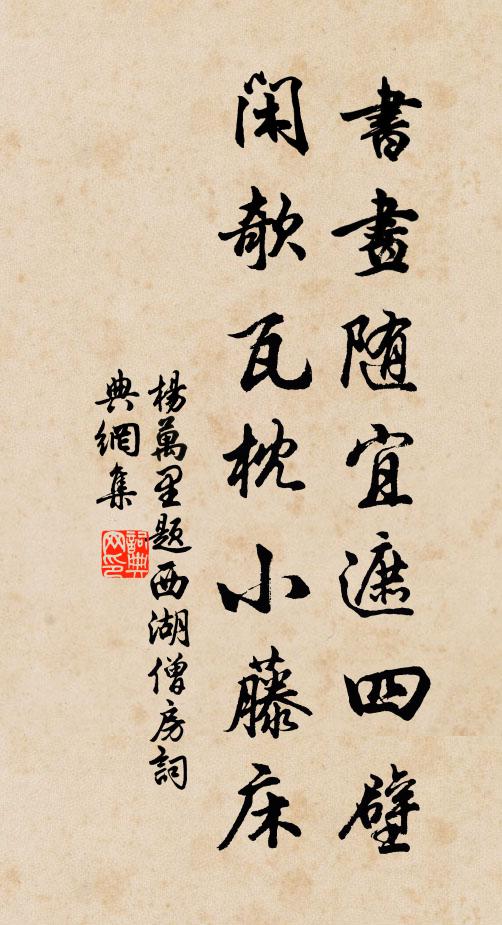 書畫随宜遮四壁
閑欹瓦枕小藤床
楊萬里題西湖僧房詞
典網集
詞典网印